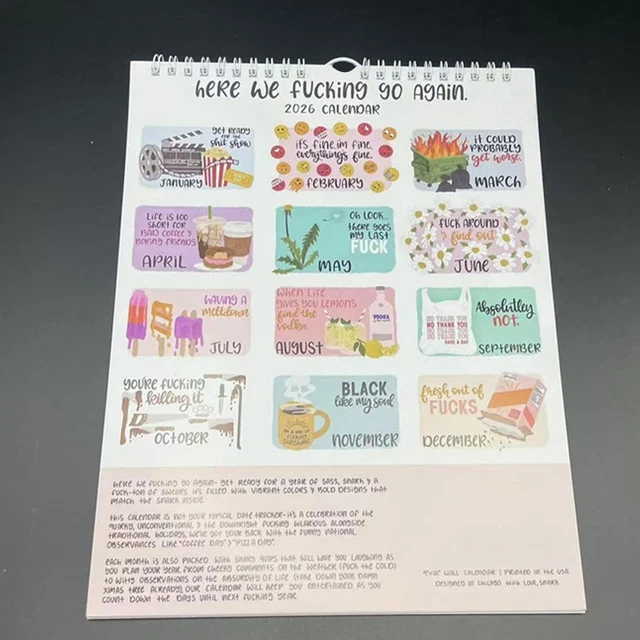 here we fucking go again.
2026 CALENDAR
get ready
for the
shit show
JANUARY
it's fine. i'm fine.
everything's fine.
FEBRUARY
it could
probably
get worse.
MARCH
Life is too
short for
BAD coffee &
boring friends
APRIL
Oh look...
there goes
my last
FUCK
MAY
FUCK AROUND
& find out
JUNE
having a
meltdown
JULY
when life
gives you lemons
find the
vodka
VODKA
AUGUST
NO THANK YOU
NO THANK YOU
NO THANK YOU
HAVE A DAY
Absolutley
not.
SEPTEMBER
you're fucking
killing it
OCTOBER
BLACK
like my soul
NOVEMBER
fresh out of
FUCKS
DECEMBER
here we fucking go again- get ready for a year of sass, snark & a
fuck-ton of swears. It's filled with vibrant colors & bold designs that
match the snark inside.
this calendar is not your typical date tracker-it's a celebration of the
quirky, unconventional & the downright fucking hilarious. alongside
traditional holidays, we've got your back with the funny national
observances like "coffee day" & "pizza day".
each month is also packed with snarky quips that will have you laughing as
you plan your year. from cheeky comments on the weather (fuck the cold)
to witty observations on the absurdity of life (take down your damn
xmas tree already), our calendar will keep you entertained as you
count down the days until next fucking year
9"x12" wall calendar | printed in the usa
designed in chicago with love, snark